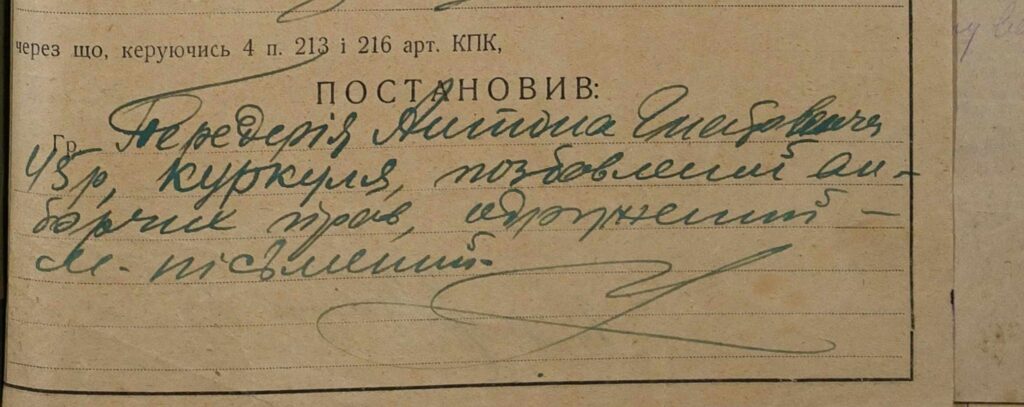 через що, керуючись 4 п. 213 і 216 арт. КПК,
ПОСТАНОВИВ:
Гр. Передерія Антона Гнатовича
43р, куркуля, позбавлений ви-
борчих прав, одружений –
м-письмений.